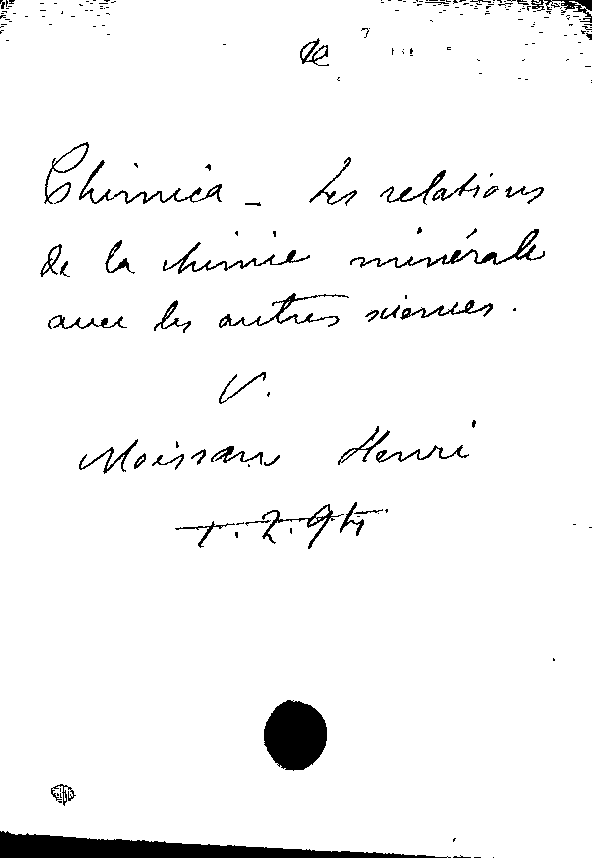 Chimica - Les relations
de la chimie minérale
avec les autres sciences.
V.
Moissan Henri
1.2.94